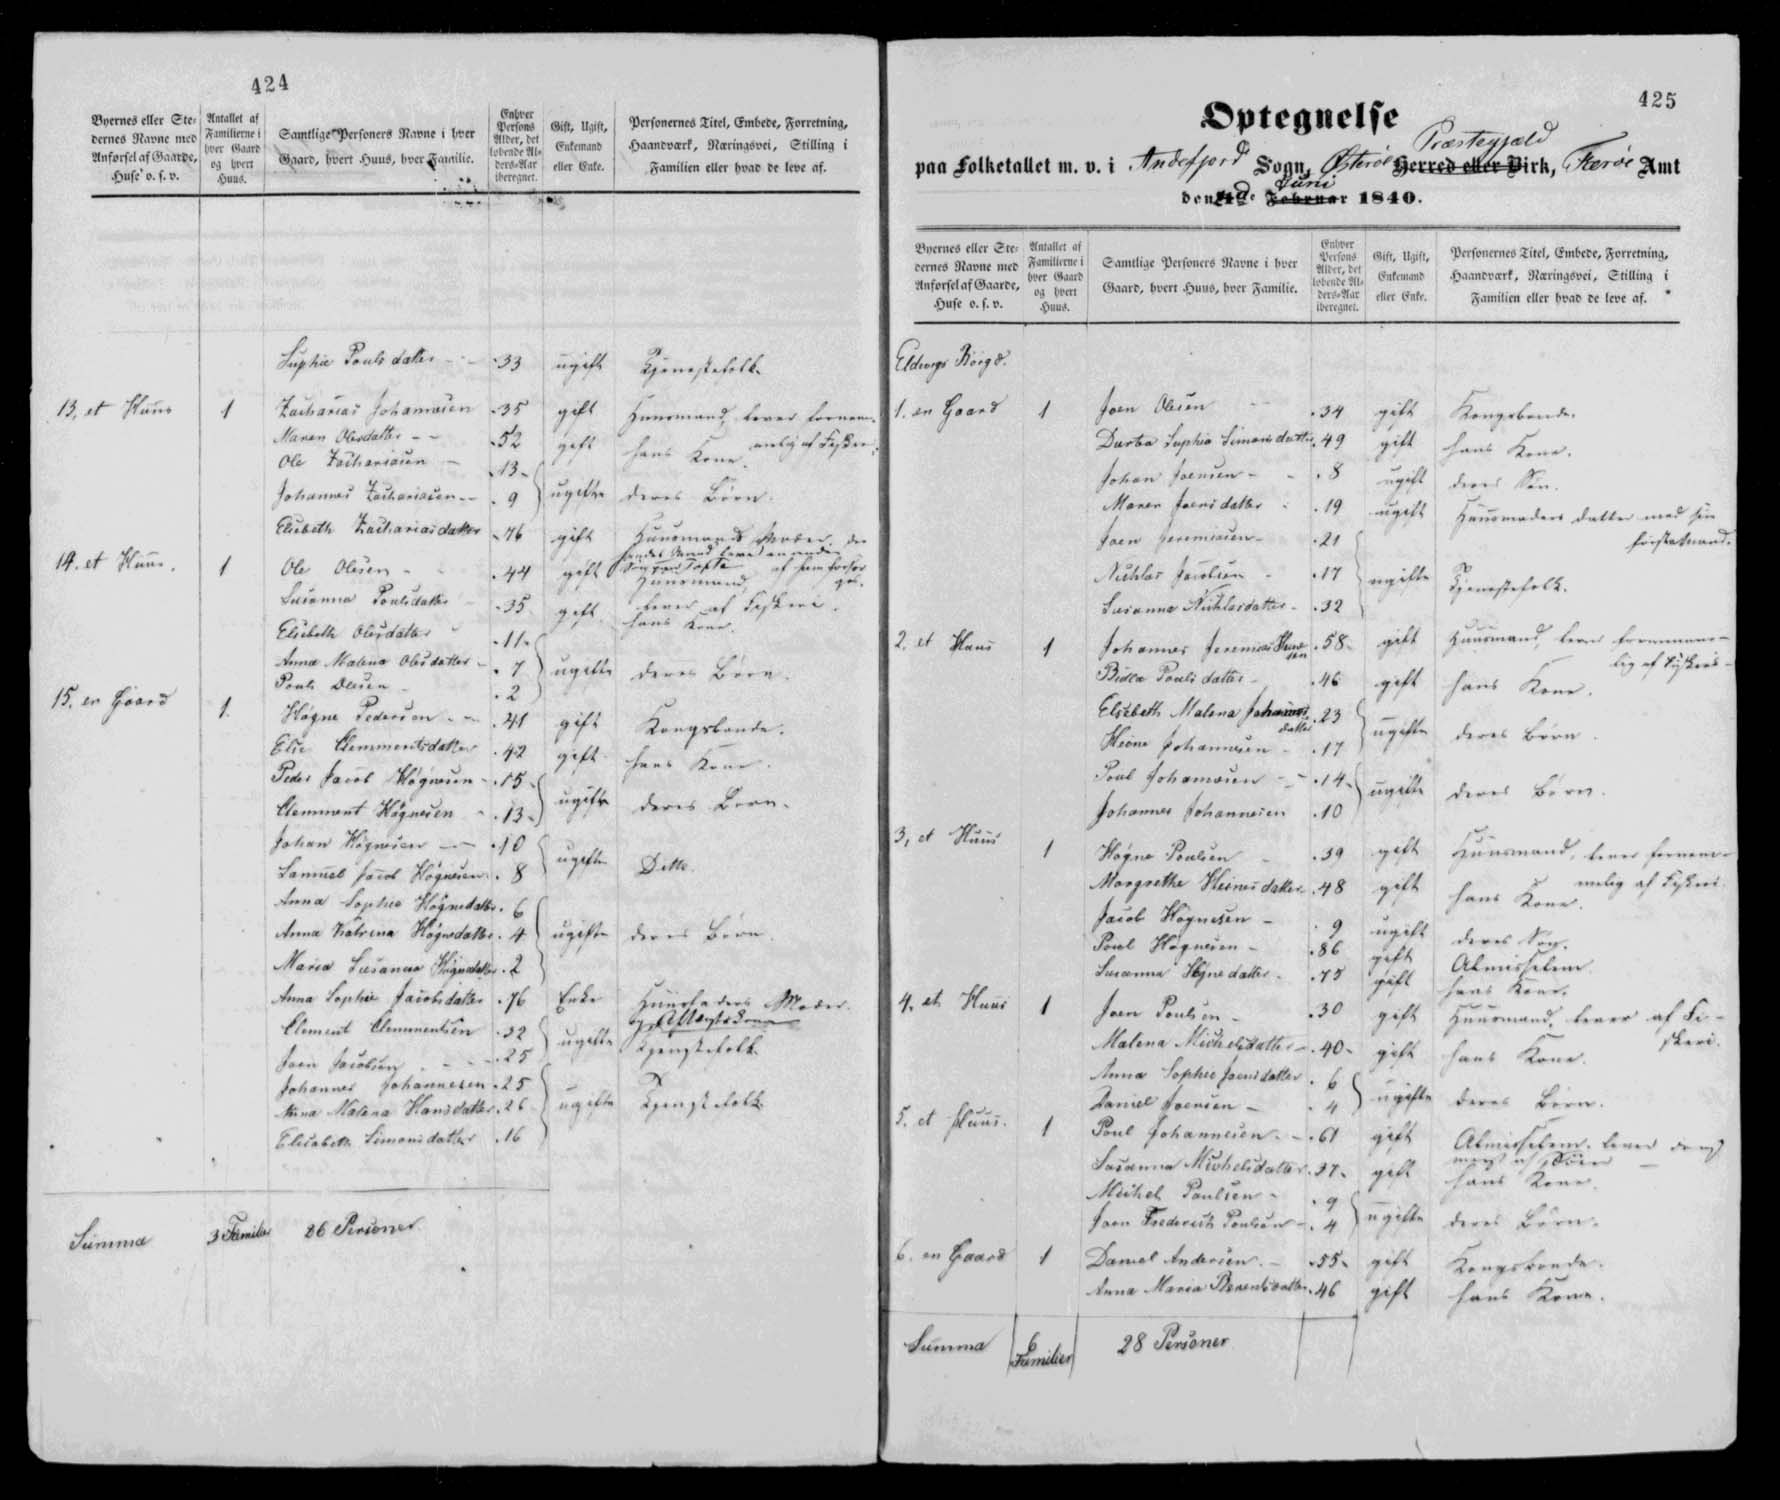 424
Byernes eller Ste-
dernes Navne med
Anførsel af Gaarde,
Huse o. s. v.
Antallet af
Familierne i
hver Gaard
og hvert
Huus.
Samtlige Personers Navne i hver
Gaard, hvert Huus, hver Familie.
Enhver
Persons
Alder, det
løbende Al-
ders-Aar
iberegnet.
Gift, Ugift,
Enkemand
eller Enke.
Personernes Titel, Embede, Forretning,
Haandværk, Næringsvei, Stilling i
Familien eller hvad de leve af.
Suphia Pouls datter 33 ugift Tjenestefolk
13, et Huus 1 Zacharias Johannesen 35 gift Huusmand, lever fornem-
Maren Olesdatter 52 gift hans Kone. melig af Fiskeri.
Ole Zachariasen 13
Johannes Zachariasen 9 ugifte deres Børn.
Elsebeth Zacharias datter 76 gift Huusmands Moder, der
14. et Huus. 1 Ole Olesen 44 gift Huusmand,
lever af Fiskeri.
Susanna Poulsdatter 35 gift. hans Kone.
Elsebeth Olesdatter 11
Anna Malena Olesdatter 7 ugifte deres Børn.
Pouls Olesen 2
15. en Gaard 1. Høgne Pedersen 41 gift Kongsbonde.
Else Clemmentsdatter 42 gift hans Kone.
Peder Jacob Høgnesen 15
Clemment Høgnesen 13 ugifte deres Børn.
Johan Høgnesen 10
Samuel Jacob Høgnesen 8 ugifte Ditto.
Anna Sophie Høgnedatter 6
Anna Katrina Høgnedatter 4 ugifte deres Børn.
Maria Susanna Høgnedatter 2
Anna Sophie Jacobsdatter 76 Enke Huusfaders Moder.
og Aftægtskone
Clement Clemmentsen 32 ugifte Tjenestefolk
Joen Jacobsen 25
Johannes Johannesen 25
Anna Malena Hansdatter 26 ugifte Tjenestefolk
Elisabeth Simonsdatter 16
Summa 3 Familier 26 Personer.
425
Optegnelse
Præstegjæld
paa Folketallet m. v. i Andefjord Sogn, Østerøe Herred eller Birk, Færøe Amt
Juni
den Februar 1840.
Byernes eller Ste-
dernes Navne med
Anførsel af Gaarde,
Huse o. s. v.
Antallet af
Familierne i
hver Gaard
og hvert
Huus.
Samtlige Personers Navne i hver
Gaard, hvert Huus, hver Familie.
Enhver
Persons
Alder, det
løbende Al-
ders-Aar
iberegnet.
Gift, Ugift,
Enkemand
eller Enke.
Personernes Titel, Embede, Forretning,
Haandværk, Næringsvei, Stilling i
Familien eller hvad de leve af.
Eldevigs Böigd.
1. en Gaard 1 Joen Olesen 34 gift Kongsbonde.
Durtea Suphia Simonsdatter 49 gift hans Kone.
Johan Joensen 8 ugift deres Søn.
Maren Joensdatter 19 ugift Huusmoders datter med sin
første Mand.
Joen Jeremiasen 21
Nichlas Jacobsen 17 ugifte Tjenestefolk.
Susanna Nichlasdatter 32
2. et Huus 1 Johannes Jeremias Heine-
sen 58 gift Huusmand, lever fornemme-
lig af Fiskeri
Bidla Pouls datter 46 gift hans Kone.
Elsebeth Malena Johannes
datter 23 ugifte deres Børn.
Heine Johannesen 17
Poul Johannesen 14 ugifte deres Børn.
Johannes Johannesen 10
3, et Huus 1 Høgne Poulsen 39 gift Huusmand, lever fornem-
melig af Fiskeri.
Margrethe Heinesdatter 48 gift hans Kone.
Jacob Høgnesen 9 ugift deres Søn.
Poul Høgnesen 86 gift Almisselem.
Susanna Høgnedatter 75 gift hans Kone.
4, et Huus 1 Joen Poulsen 30 gift Huusmand, lever af Fi-
skeri.
Malena Michelsdatter 40 gift hans Kone.
Anna Sophie Joensdatter 6 ugifte deres Børn.
Daniel Joensen 4
5. et Huus. 1 Poul Johannesen 61 gift Almisselem. lever
Susanna Michelsdatter 37 gift hans Kone.
Michel Poulsen 9 ugifte deres Børn.
Joen Frederich Poulsen 4
6. en Gaard 1 Daniel Andersen 55 gift Kongsbonde.
Anna Maria Berentsdatter 46 gift hans Kone.
Summa 6
Familier 28 Personer